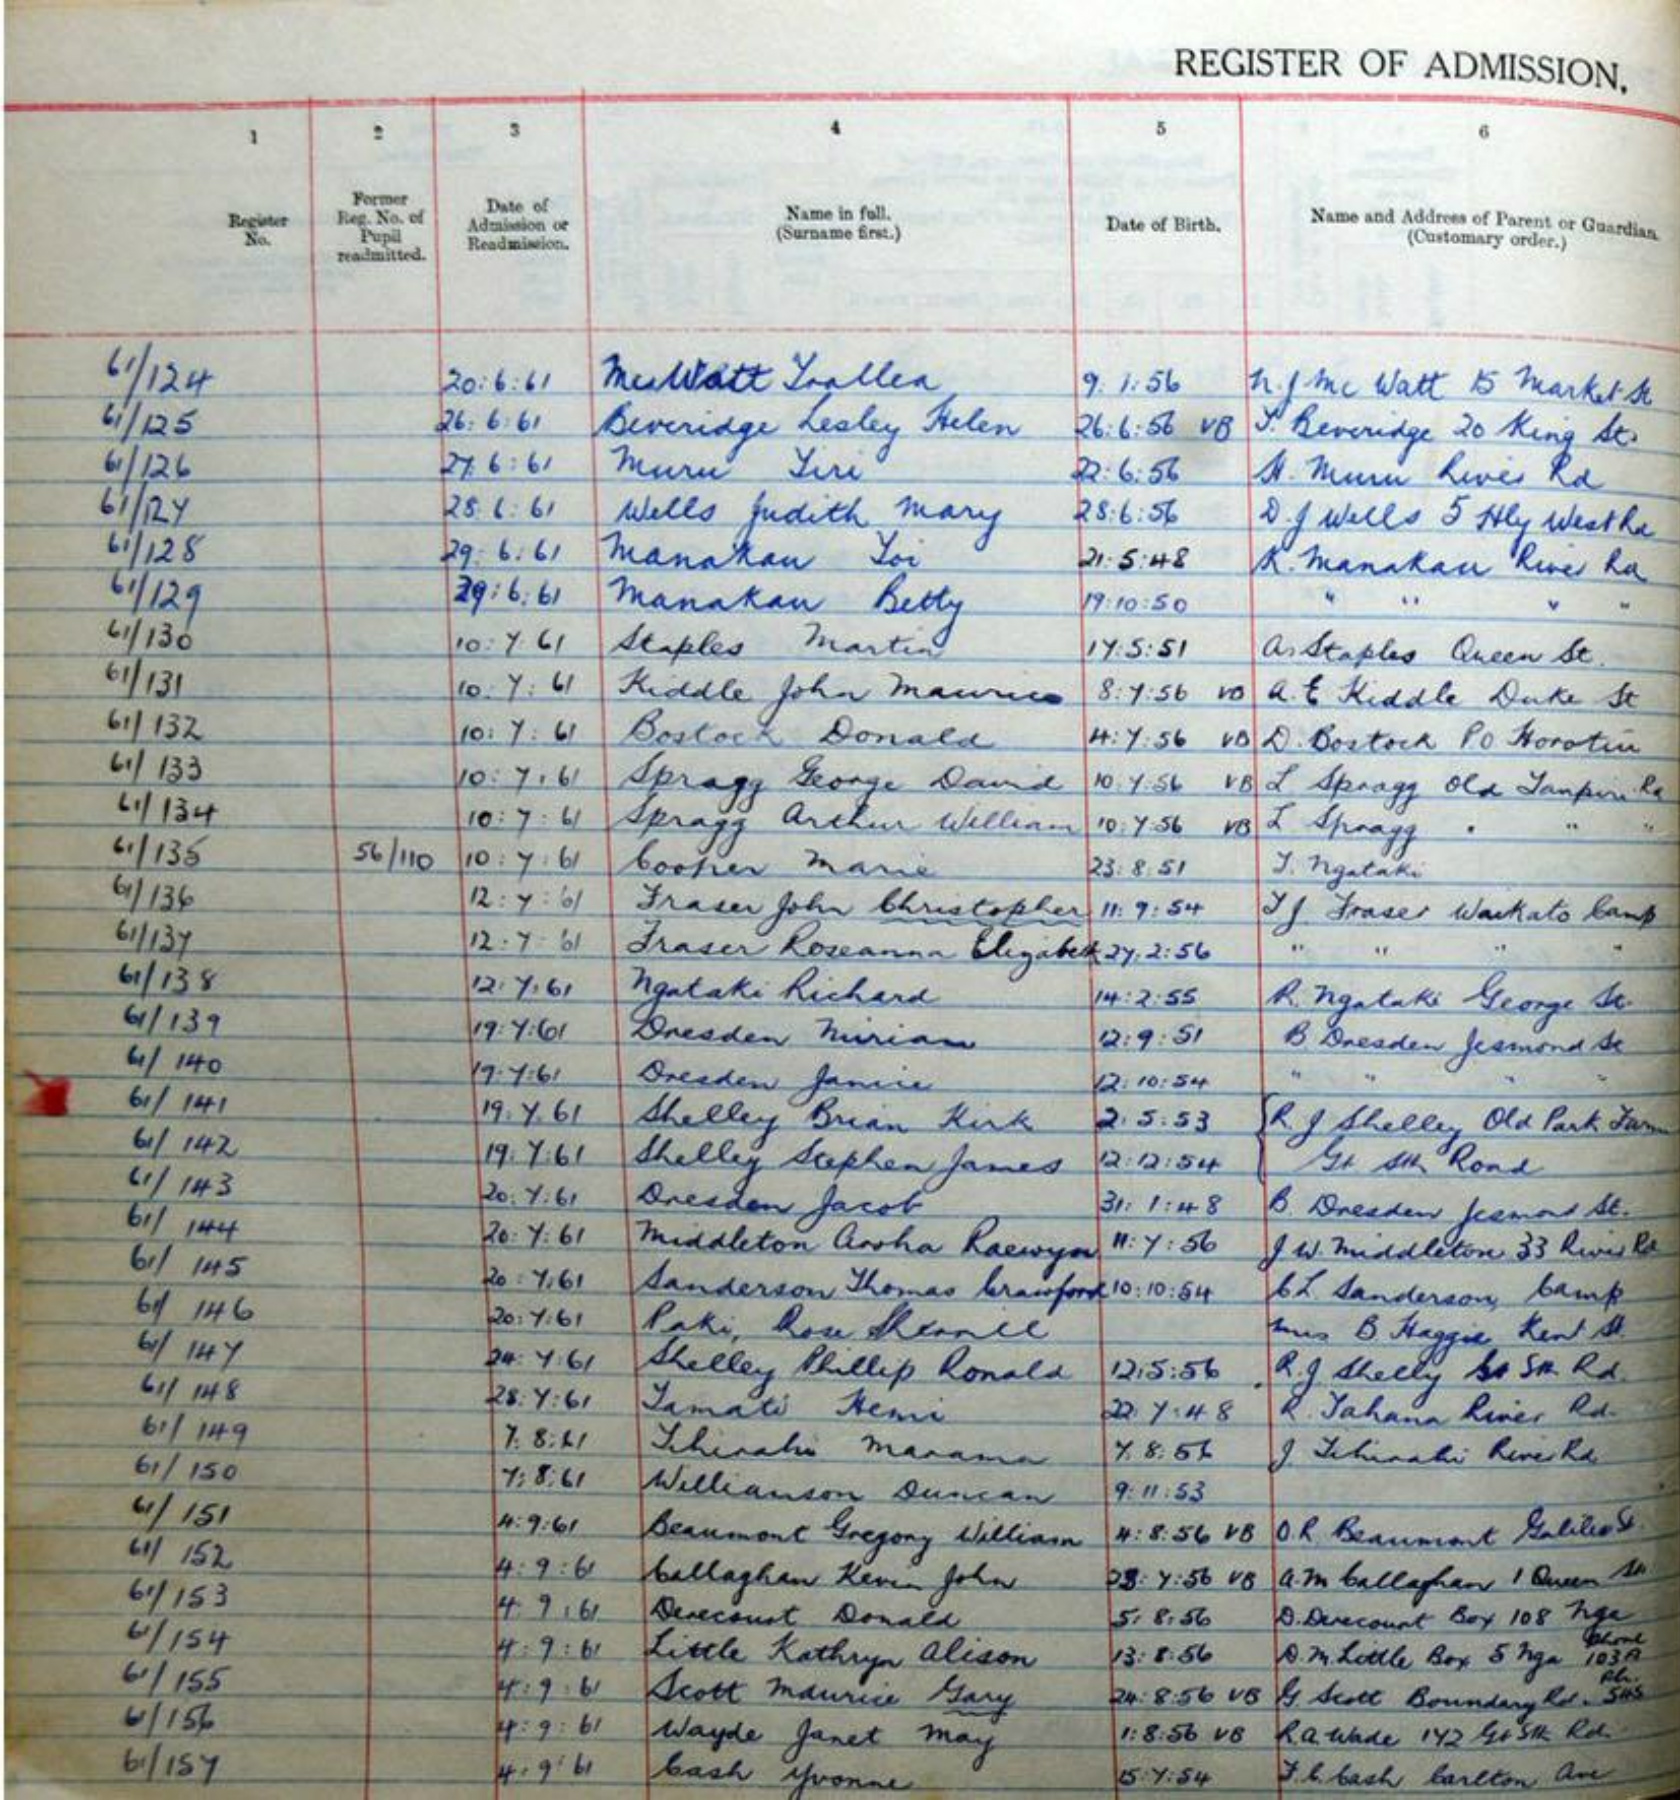 REGISTER OF ADMISSION,
1 2 3 4 5 6
Register No. Former Reg. No. of Pupil readmitted. Date of Admission or Readmission. Name in full. (Surname first.) Date of Birth. Name and Address of Parent or Guardian (Customary order.)
61/124 20:6:61 McWatt 9:1:56 N. J Mc Watt 15 Market St
61/125 26:6:61 Beveridge Lesley Helen 26:6:56 VB T. Beveridge 20 King St.
61/126 27:6:61 Muru Tiri 22:6:56 H. Muru River Rd
61/127 28:6:61 Wells Judith Mary 28:6:56 D. J Wells 5 Hly West Rd
61/128 29:6:61 Manakau Toi 21:5:48 K. Manakau River Rd
61/129 29:6:61 Manakau Betty 19:10:50 " " " "
61/130 10:7:61 Staples Martin 17:5:51 A. Staples Queen St.
61/131 10:7:61 Kiddle John Maurice 8:7:56 VB A. E Kiddle Duke St
61/132 10:7:61 Bostock Donald 4:7:56 VB D. Bostock PO Horotiu
61/133 10:7:61 Spragg George David 10:7:56 VB L Spragg Old Taupiri Rd
61/134 10:7:61 Spragg Arthur William 10:7:56 VB L Spragg " " "
61/135 56/110 10:7:61 Cooper Marie 23:8:51 T. Ngataki
61/136 12:7:61 Fraser John Christopher 11:9:54 T J Fraser Waikato Camp
61/137 12:7:61 Fraser Roseanna Elizabeth 27:2:56 " " " "
61/138 12:7:61 Ngataki Richard 14:2:55 R. Ngataki George St.
61/139 19:7:61 Dresden Miriam 12:9:51 B Dresden Jesmond St
61/140 19:7:61 Dresden Janice 12:10:54 " " " "
61/141 19:7:61 Shelley Brian Kirk 2:5:53 R J Shelley Old Park Farm
61/142 19:7:61 Shelley Stephen James 12:12:54 Gt Sth Road
61/143 20:7:61 Dresden Jacob 31:1:48 B. Dresden Jesmond St.
61/144 20:7:61 Middleton Aroha Raewyn 11:7:56 J W. Middleton 33 River Rd
61/145 20:7:61 Sanderson Thomas Crawford 10:10:54 C L Sanderson, Camp
61/146 20:7:61 Paki, Rose Mrs B Haggie Kent St.
61/147 24:7:61 Shelley Phillip Ronald 12:5:56 R. J Shelly Gt Sth Rd.
61/148 28:7:61 Tamati Hemi 22:7:48 R. Tahana River Rd.
61/149 7:8:61 Marama 7:8:56 J River Rd
61/150 7:8:61 Williamson Duncan 9:11:53
61/151 4:9:61 Beaumont Gregory William 4:8:56 VB O. R. Beaumont Galileo St.
61/152 4:9:61 Callaghan Kevin John 28:7:56 VB A. M Callaghan 1 Queen St
61/153 4:9:61 Derecourt Donald 5:8:56 D. Derecourt Box 108 Nga
61/154 4:9:61 Little Kathryn Alison 13:8:56 D. M. Little Box 5 Nga Phone 103A
61/155 4:9:61 Scott Maurice Gary 24:8:56 VB G Scott Boundary Rd. Ph.
61/156 4:9:61 Wayde Janet May 1:8:56 VB R. A. Wade 142 Gt Sth Rd.
61/157 4:9:61 Cash Yvonne 15:7:54 F. C. Cash Carlton Ave